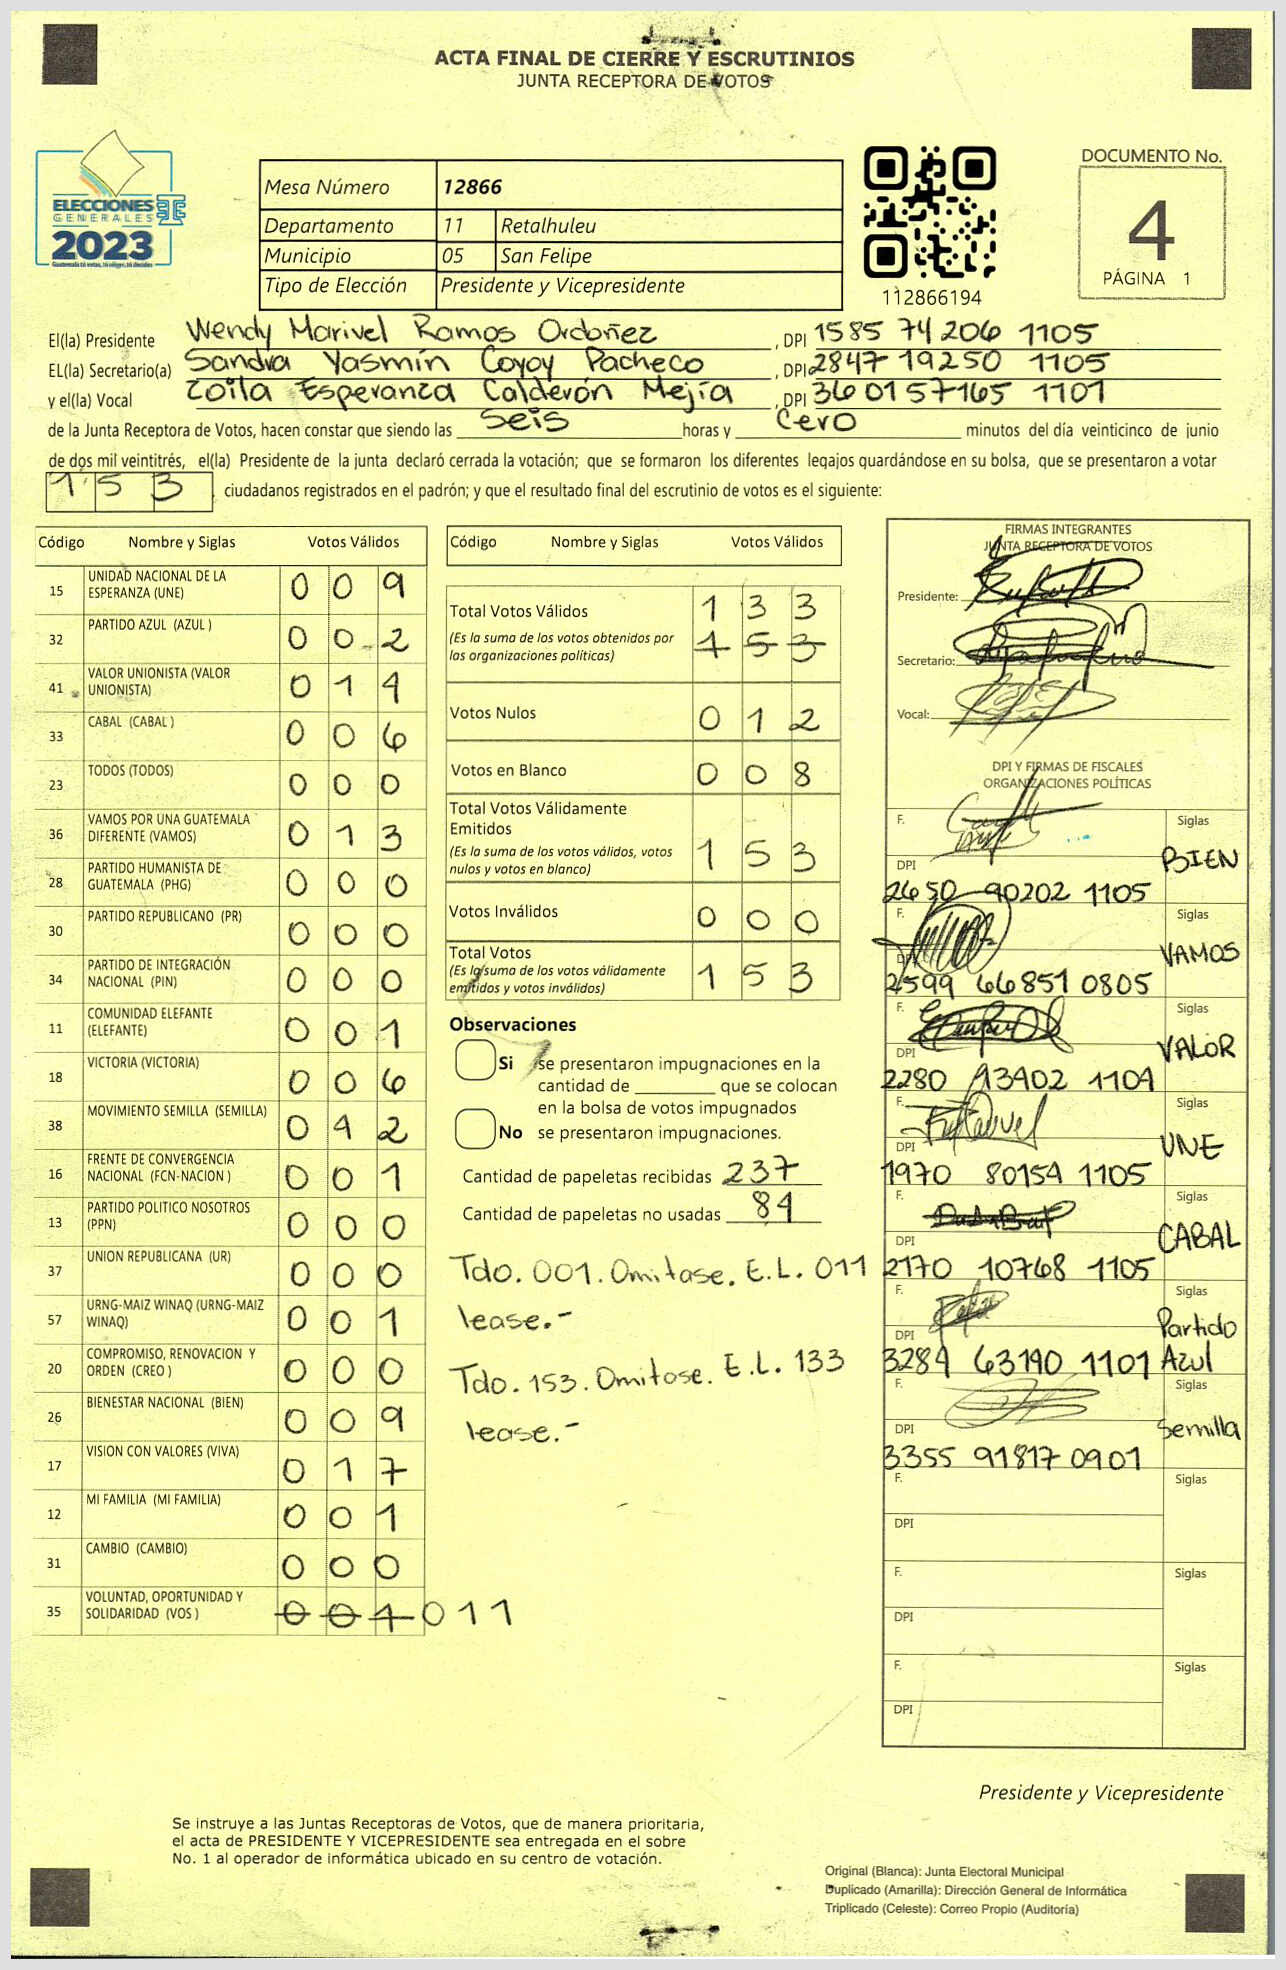 ACTA FINAL DE CIERRE Y ESCRUTINIOS
JUNTA RECEPTORA DE VOTOS
ELECCIONES
GENERALES
2023
Guatemala tú votas, tú eliges, tú decides
Mesa Número 12866
Departamento 11 Retalhuleu
Municipio 05 San Felipe
Tipo de Elección Presidente y Vicepresidente
112866194
DOCUMENTO No.
4
PÁGINA 1
El(la) Presidente Wendy Marivel Ramos Ordoñez, DPI 1585 74206 1105
EL(la) Secretario(a) Sandra Yasmín Coyoy Pacheco, DPI 2847 19250 1105
y el(la) Vocal Zoila Esperanza Calderón Mejía, DPI 3601 57165 1101
de la Junta Receptora de Votos, hacen constar que siendo las Seis horas y Cero minutos del día veinticinco de junio
de dos mil veintitrés, el(la) Presidente de la junta declaró cerrada la votación; que se formaron los diferentes legajos guardándose en su bolsa, que se presentaron a votar
153 ciudadanos registrados en el padrón; y que el resultado final del escrutinio de votos es el siguiente:
Código Nombre y Siglas Votos Válidos
15 UNIDAD NACIONAL DE LA ESPERANZA (UNE) 0 0 9
32 PARTIDO AZUL (AZUL ) 0 0 2
41 VALOR UNIONISTA (VALOR UNIONISTA) 0 1 4
33 CABAL (CABAL ) 0 0 6
23 TODOS (TODOS) 0 0 0
36 VAMOS POR UNA GUATEMALA DIFERENTE (VAMOS) 0 1 3
28 PARTIDO HUMANISTA DE GUATEMALA (PHG) 0 0 0
30 PARTIDO REPUBLICANO (PR) 0 0 0
34 PARTIDO DE INTEGRACIÓN NACIONAL (PIN) 0 0 0
11 COMUNIDAD ELEFANTE (ELEFANTE) 0 0 1
18 VICTORIA (VICTORIA) 0 0 6
38 MOVIMIENTO SEMILLA (SEMILLA) 0 4 2
16 FRENTE DE CONVERGENCIA NACIONAL (FCN-NACION ) 0 0 1
13 PARTIDO POLITICO NOSOTROS (PPN) 0 0 0
37 UNION REPUBLICANA (UR) 0 0 0
57 URNG-MAIZ WINAQ (URNG-MAIZ WINAQ) 0 0 1
20 COMPROMISO, RENOVACION Y ORDEN (CREO ) 0 0 0
26 BIENESTAR NACIONAL (BIEN) 0 0 9
17 VISION CON VALORES (VIVA) 0 1 7
12 MI FAMILIA (MI FAMILIA) 0 0 1
31 CAMBIO (CAMBIO) 0 0 0
35 VOLUNTAD, OPORTUNIDAD Y SOLIDARIDAD (VOS ) 0 0 1 0 1 1
Código Nombre y Siglas Votos Válidos
Total Votos Válidos 1 3 3
(Es la suma de los votos obtenidos por las organizaciones politicas) 1 5 3
Votos Nulos 0 1 2
Votos en Blanco 0 0 8
Total Votos Válidamente Emitidos
(Es la suma de los votos válidos, votos nulos y votos en blanco) 1 5 3
Votos Inválidos 0 0 0
Total Votos
(Es la suma de los votos válidamente emitidos y votos inválidos) 1 5 3
Observaciones
Si se presentaron impugnaciones en la
cantidad de ________ que se colocan
en la bolsa de votos impugnados
No se presentaron impugnaciones.
Cantidad de papeletas recibidas 237
Cantidad de papeletas no usadas 84
Tdo. 001. Omitase. E.L. 011
lease.-
Tdo. 153. Omitase. E.L. 133
lease.-
FIRMAS INTEGRANTES
JUNTA RECEPTORA DE VOTOS
Presidente:
Secretario:
Vocal:
DPI Y FIRMAS DE FISCALES
ORGANIZACIONES POLÍTICAS
F. Siglas
DPI BIEN
2650 90202 1105
F. Siglas
DPI VAMOS
2599 66851 0805
F. Siglas
DPI VALOR
2280 13402 1104
F. Siglas
DPI UNE
1970 80154 1105
F. Siglas
DPI CABAL
2170 10768 1105
F. Siglas
DPI Partido
3284 63190 1101 Azul
F. Siglas
DPI Semilla
3355 91817 0901
F. Siglas
DPI
F. Siglas
DPI
F. Siglas
DPI
Presidente y Vicepresidente
Se instruye a las Juntas Receptoras de Votos, que de manera prioritaria,
el acta de PRESIDENTE Y VICEPRESIDENTE sea entregada en el sobre
No. 1 al operador de informática ubicado en su centro de votación.
Original (Blanca): Junta Electoral Municipal
Duplicado (Amarilla): Dirección General de Informática
Triplicado (Celeste): Correo Propio (Auditoría)